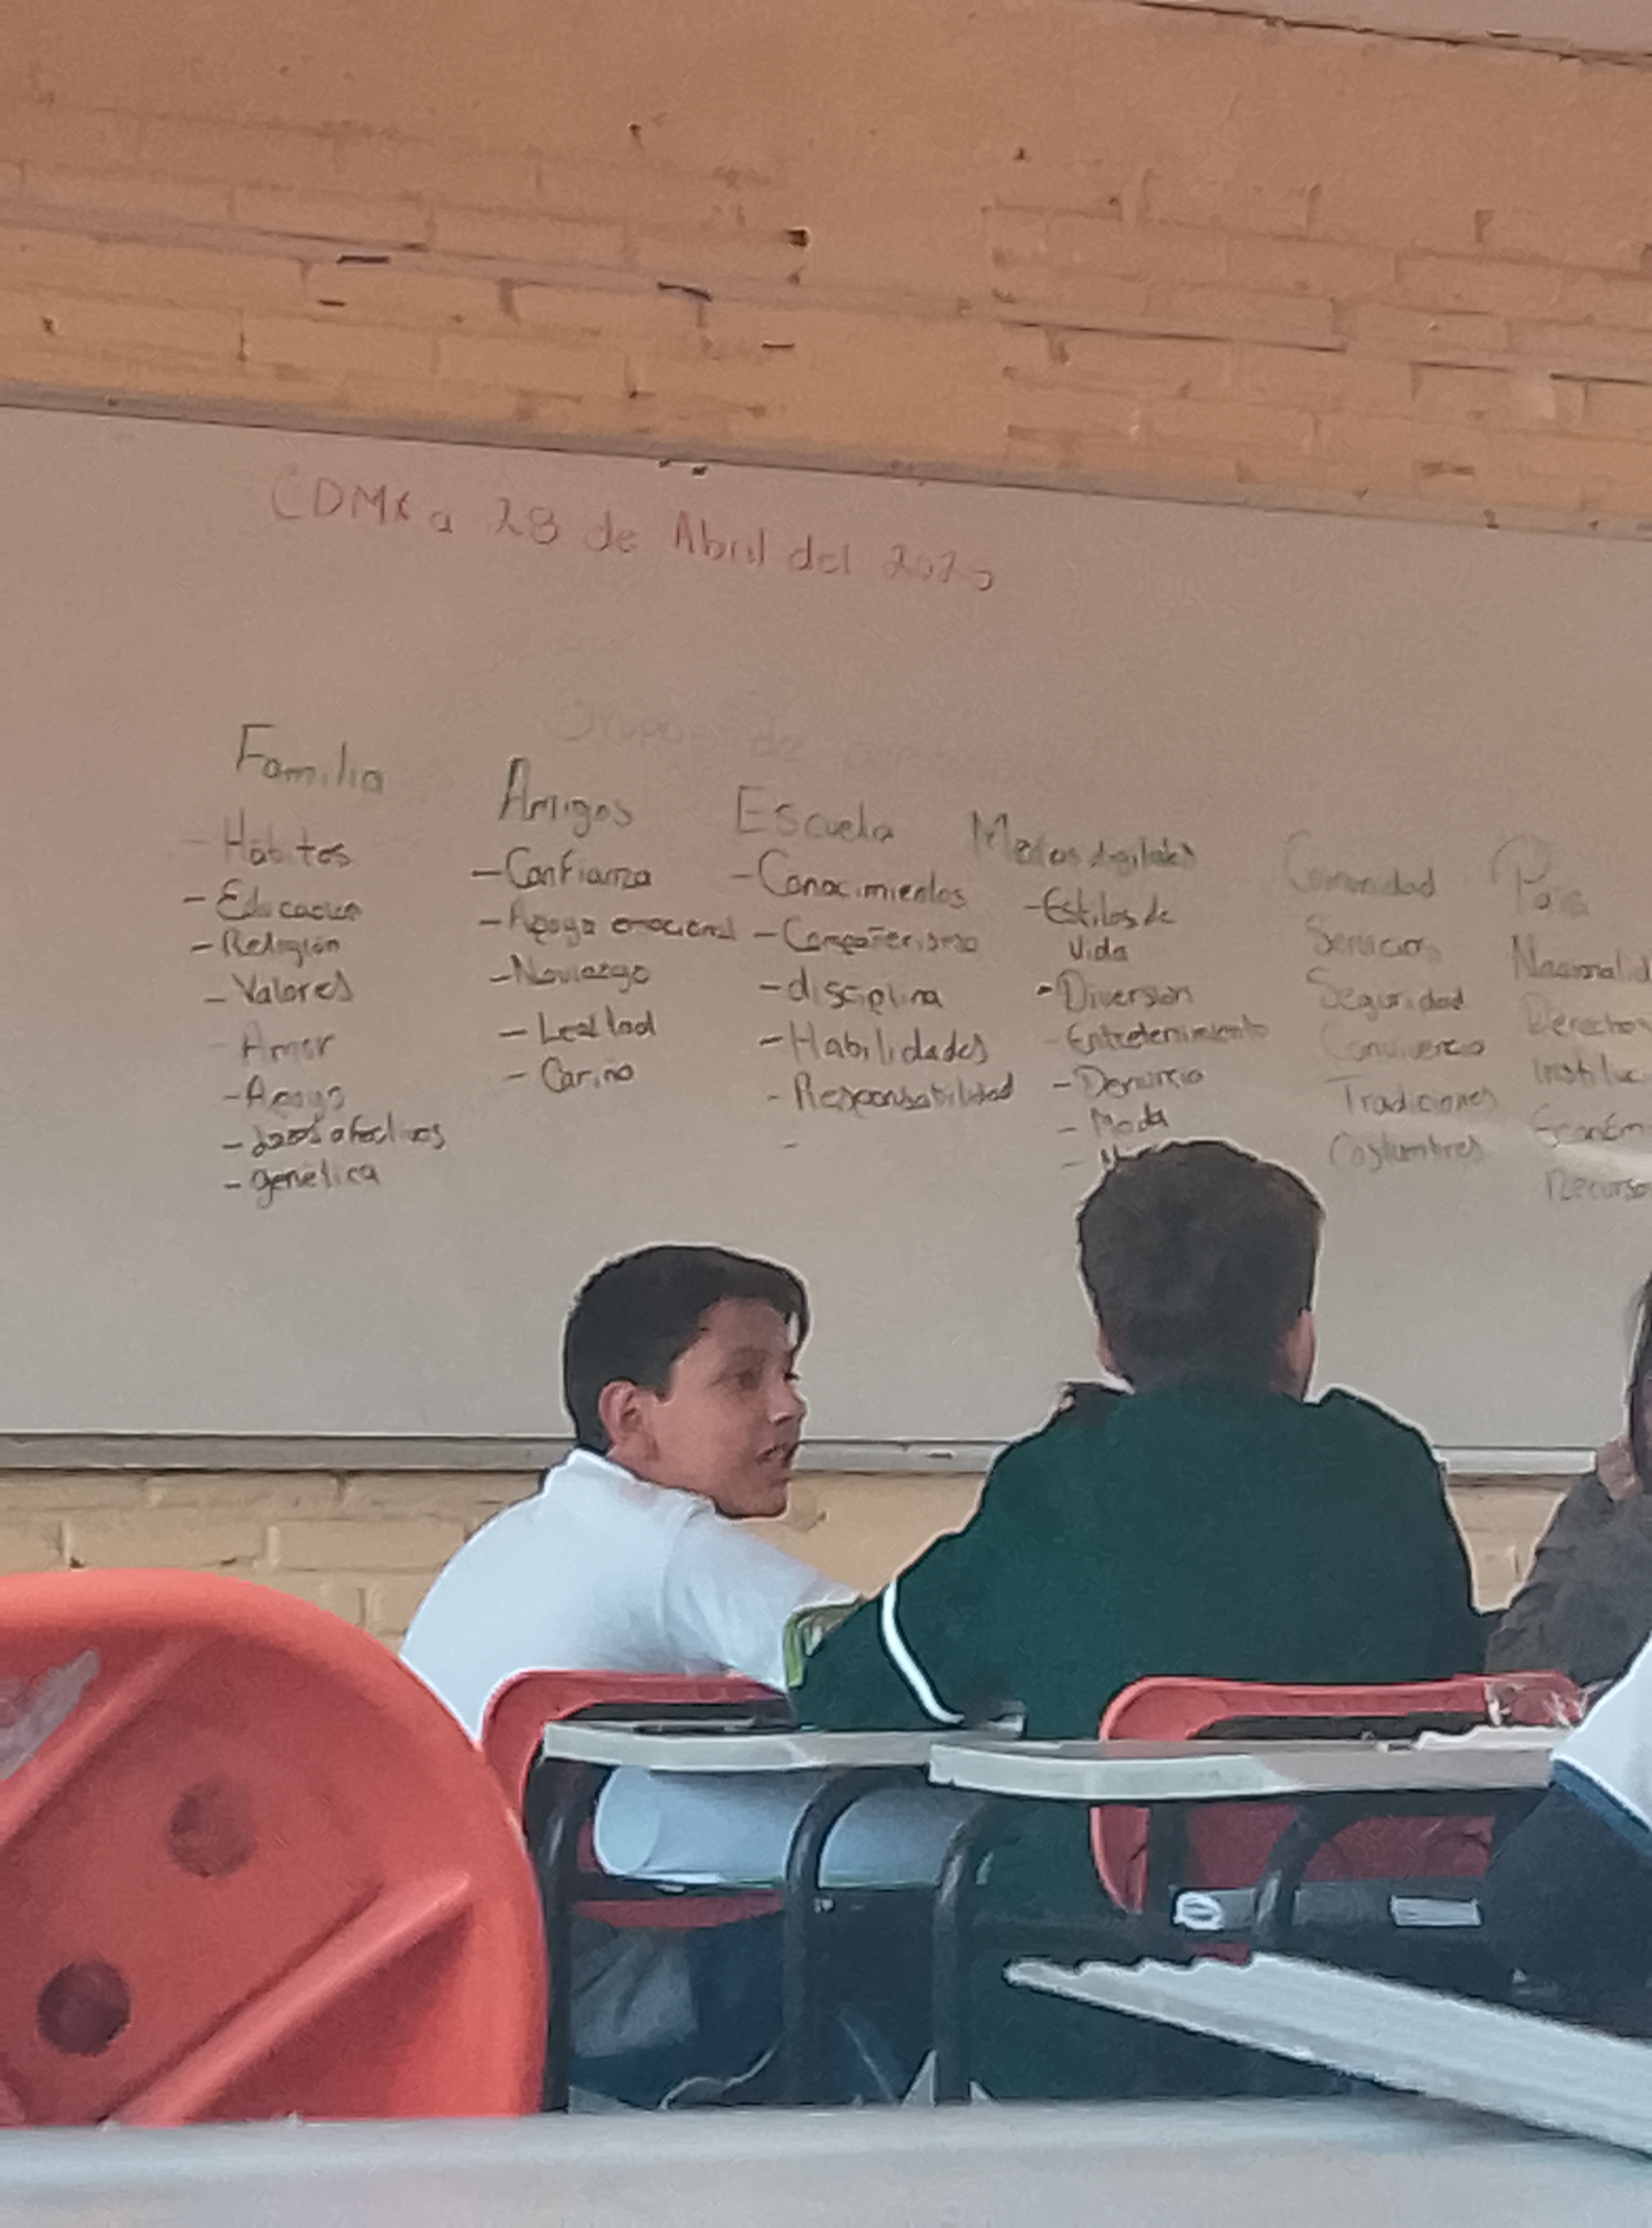 CDMX a 28 de Abril del 2025
Familia
- Habitos
- Educacion
- Religion
- Valores
- Amor
- Apoyo
- Lazos afectivos
- genetica
Amigos
- Confianza
- Apoyo emocional
- Noviazgo
- Lealtad
- Cariño
Escuela
- Conocimientos
- Compañerismo
- disciplina
- Habilidades
- Responsabilidad
-
Medios digitales
- Estilos de
vida
- Diversion
- Entretenimiento
- Denuncia
- Moda
Comunidad
Servicios
Seguridad
Convivencia
Tradiciones
Costumbres
Pais
Nacionalid
Derechos
Instituc
Económ
Recurso